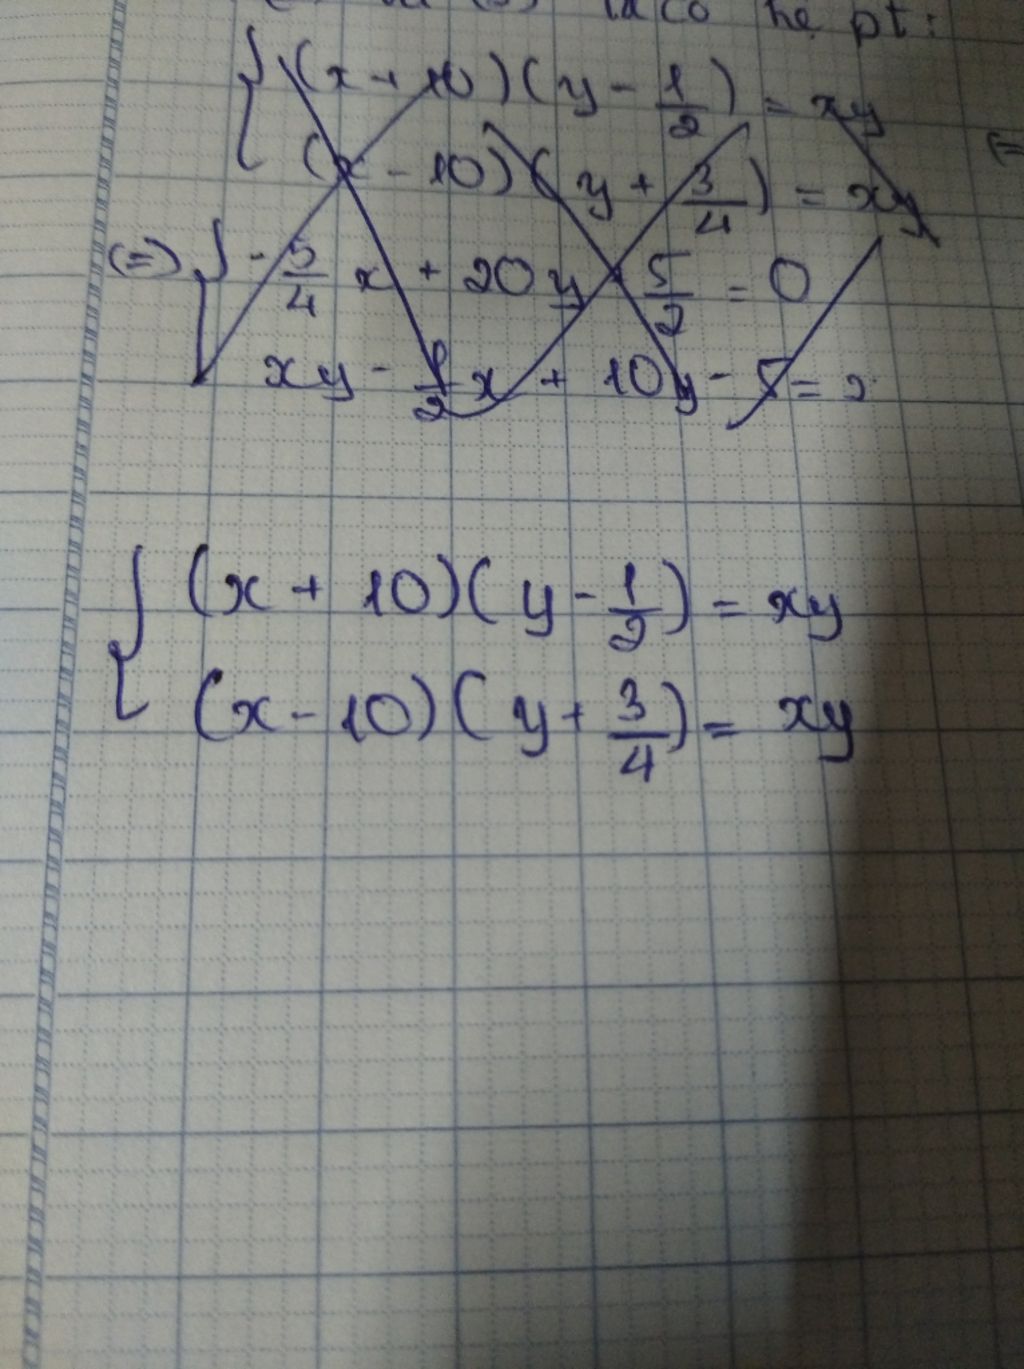 là có hệ pt:
(x + 10)(y - 1/2) = xy
(x - 10)(y + 3/4) = xy
(=) - 5/4 x + 20y 5/2 = 0
xy - 1/2 x + 10y - 5 =
(x + 10)(y - 1/2) = xy
(x - 10)(y + 3/4) = xy